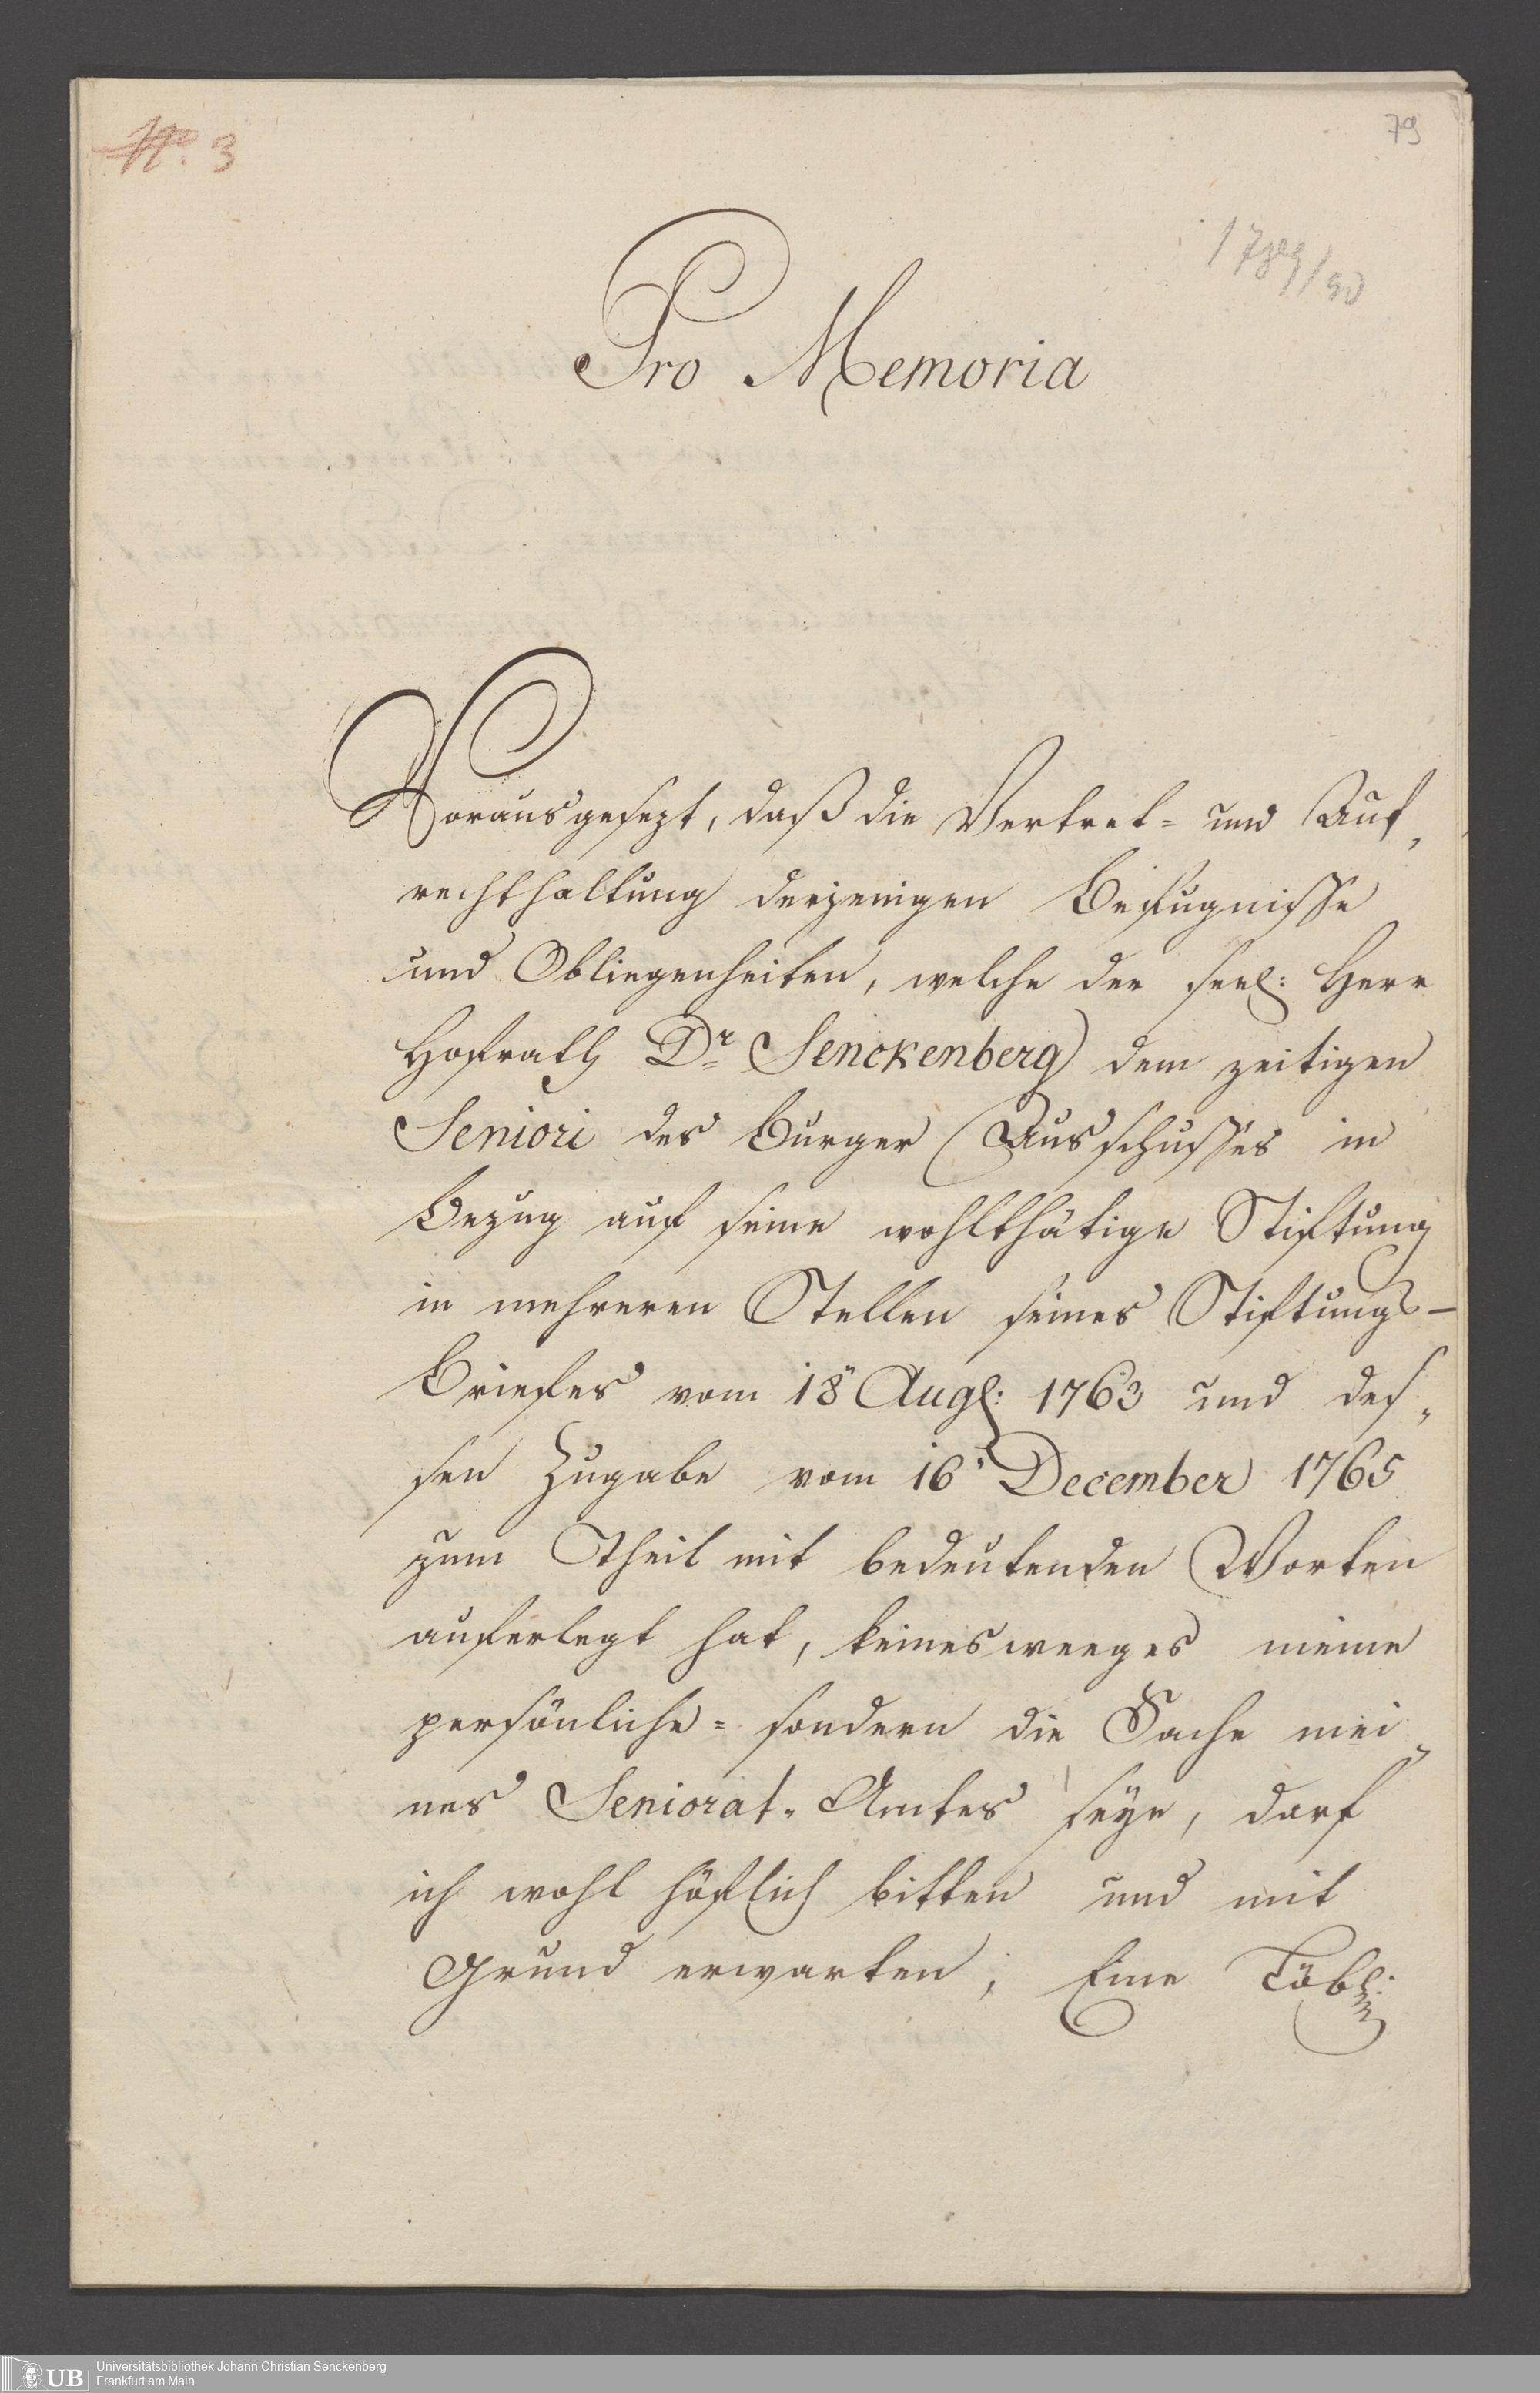 No. 3
79
1789/90
Pro Memoria
Vorausgesezt, daß die Vertret= und Auf„
rechthaltung derjenigen Befugnisse
und Obliegenheiten, welche der seel: Herr
Hofrath Dr Senckenberg dem zeitigen
Seniori des Burger Ausschusses in
Bezug auf seine wohlthätige Stiftung
in mehreren Stellen seines Stiftungs-
Briefes vom 18" Augl: 1763 und des„
sen Zugabe vom 16" December 1765
zum Theil mit bedeutenden Worten
auferlegt hat, keinesweeges meine
persönliche= sondern die Sache mei„
nes Seniorat„ Amtes seÿe, darf
ich wohl höflich bitten und mit
Grund erwarten, Eine Löbl:
UB
Universitätsbibliothek Johann Christian Senckenberg
Frankfurt am Main